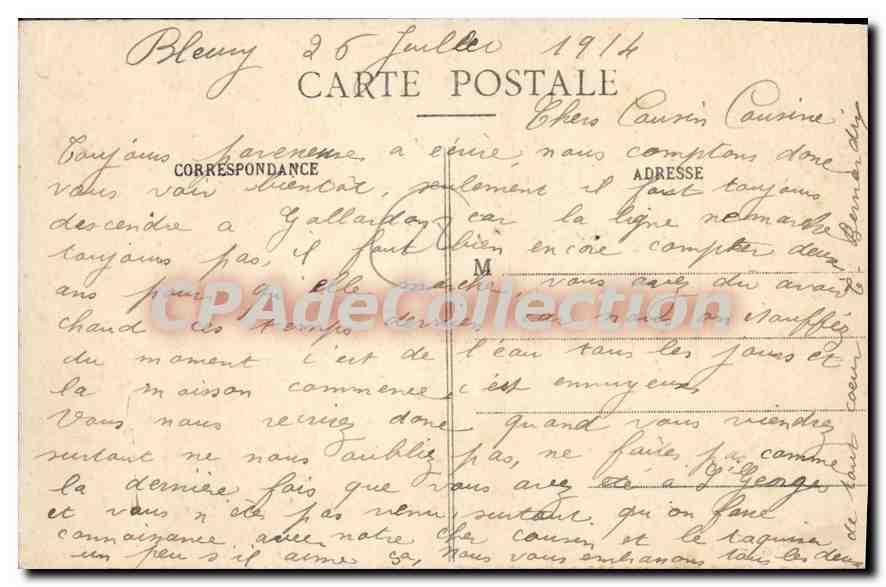 Bleury 26 Juillet 1914
CARTE POSTALE
Chers Cousin Cousine
Toujours pareneuse a écrire, nous comptons donc
CORRESPONDANCE
ADRESSE
vous voir bientôt, seulement il faut toujours
descendre a Gallardon car la ligne ne marche
toujours pas, il faut bien encore compter deux
M
ans pour qu'elle marche, vous avez du avoir
CPAdeCollection.com
chaud ces temps derniers, on étouffée
du moment c'est de l'eau tous les jours et
la moisson commence, c'est ennuyeux
Vous nous ecrirez donc quand vous viendrez
surtout ne nous oubliez pas, ne faites pas comme
la dernière fois que vous avez été à St Georges
et vous n'êtes pas venu, surtout qu'on fasse
connaissance avec notre cher cousin et le taquiner
un peu s'il aime ça, nous vous embrassons tous les deux
de tout coeur